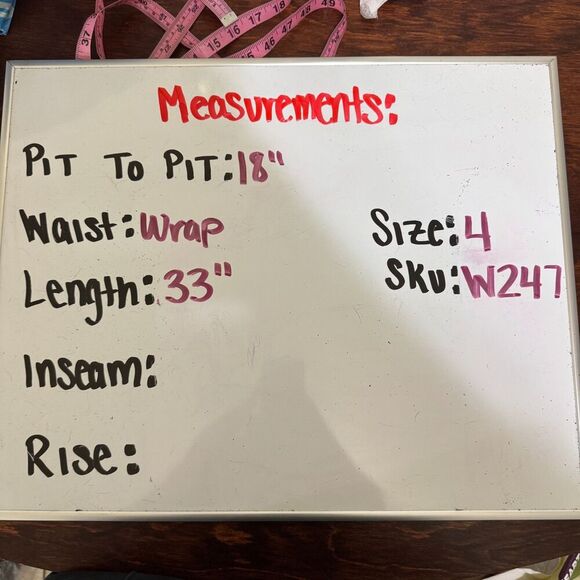 Measurements:
Pit To Pit: 18"
Waist: Wrap
Size: 4
Length: 33"
Sku: W247
Inseam:
Rise:
37
15
16
17
45
46
47
48
49